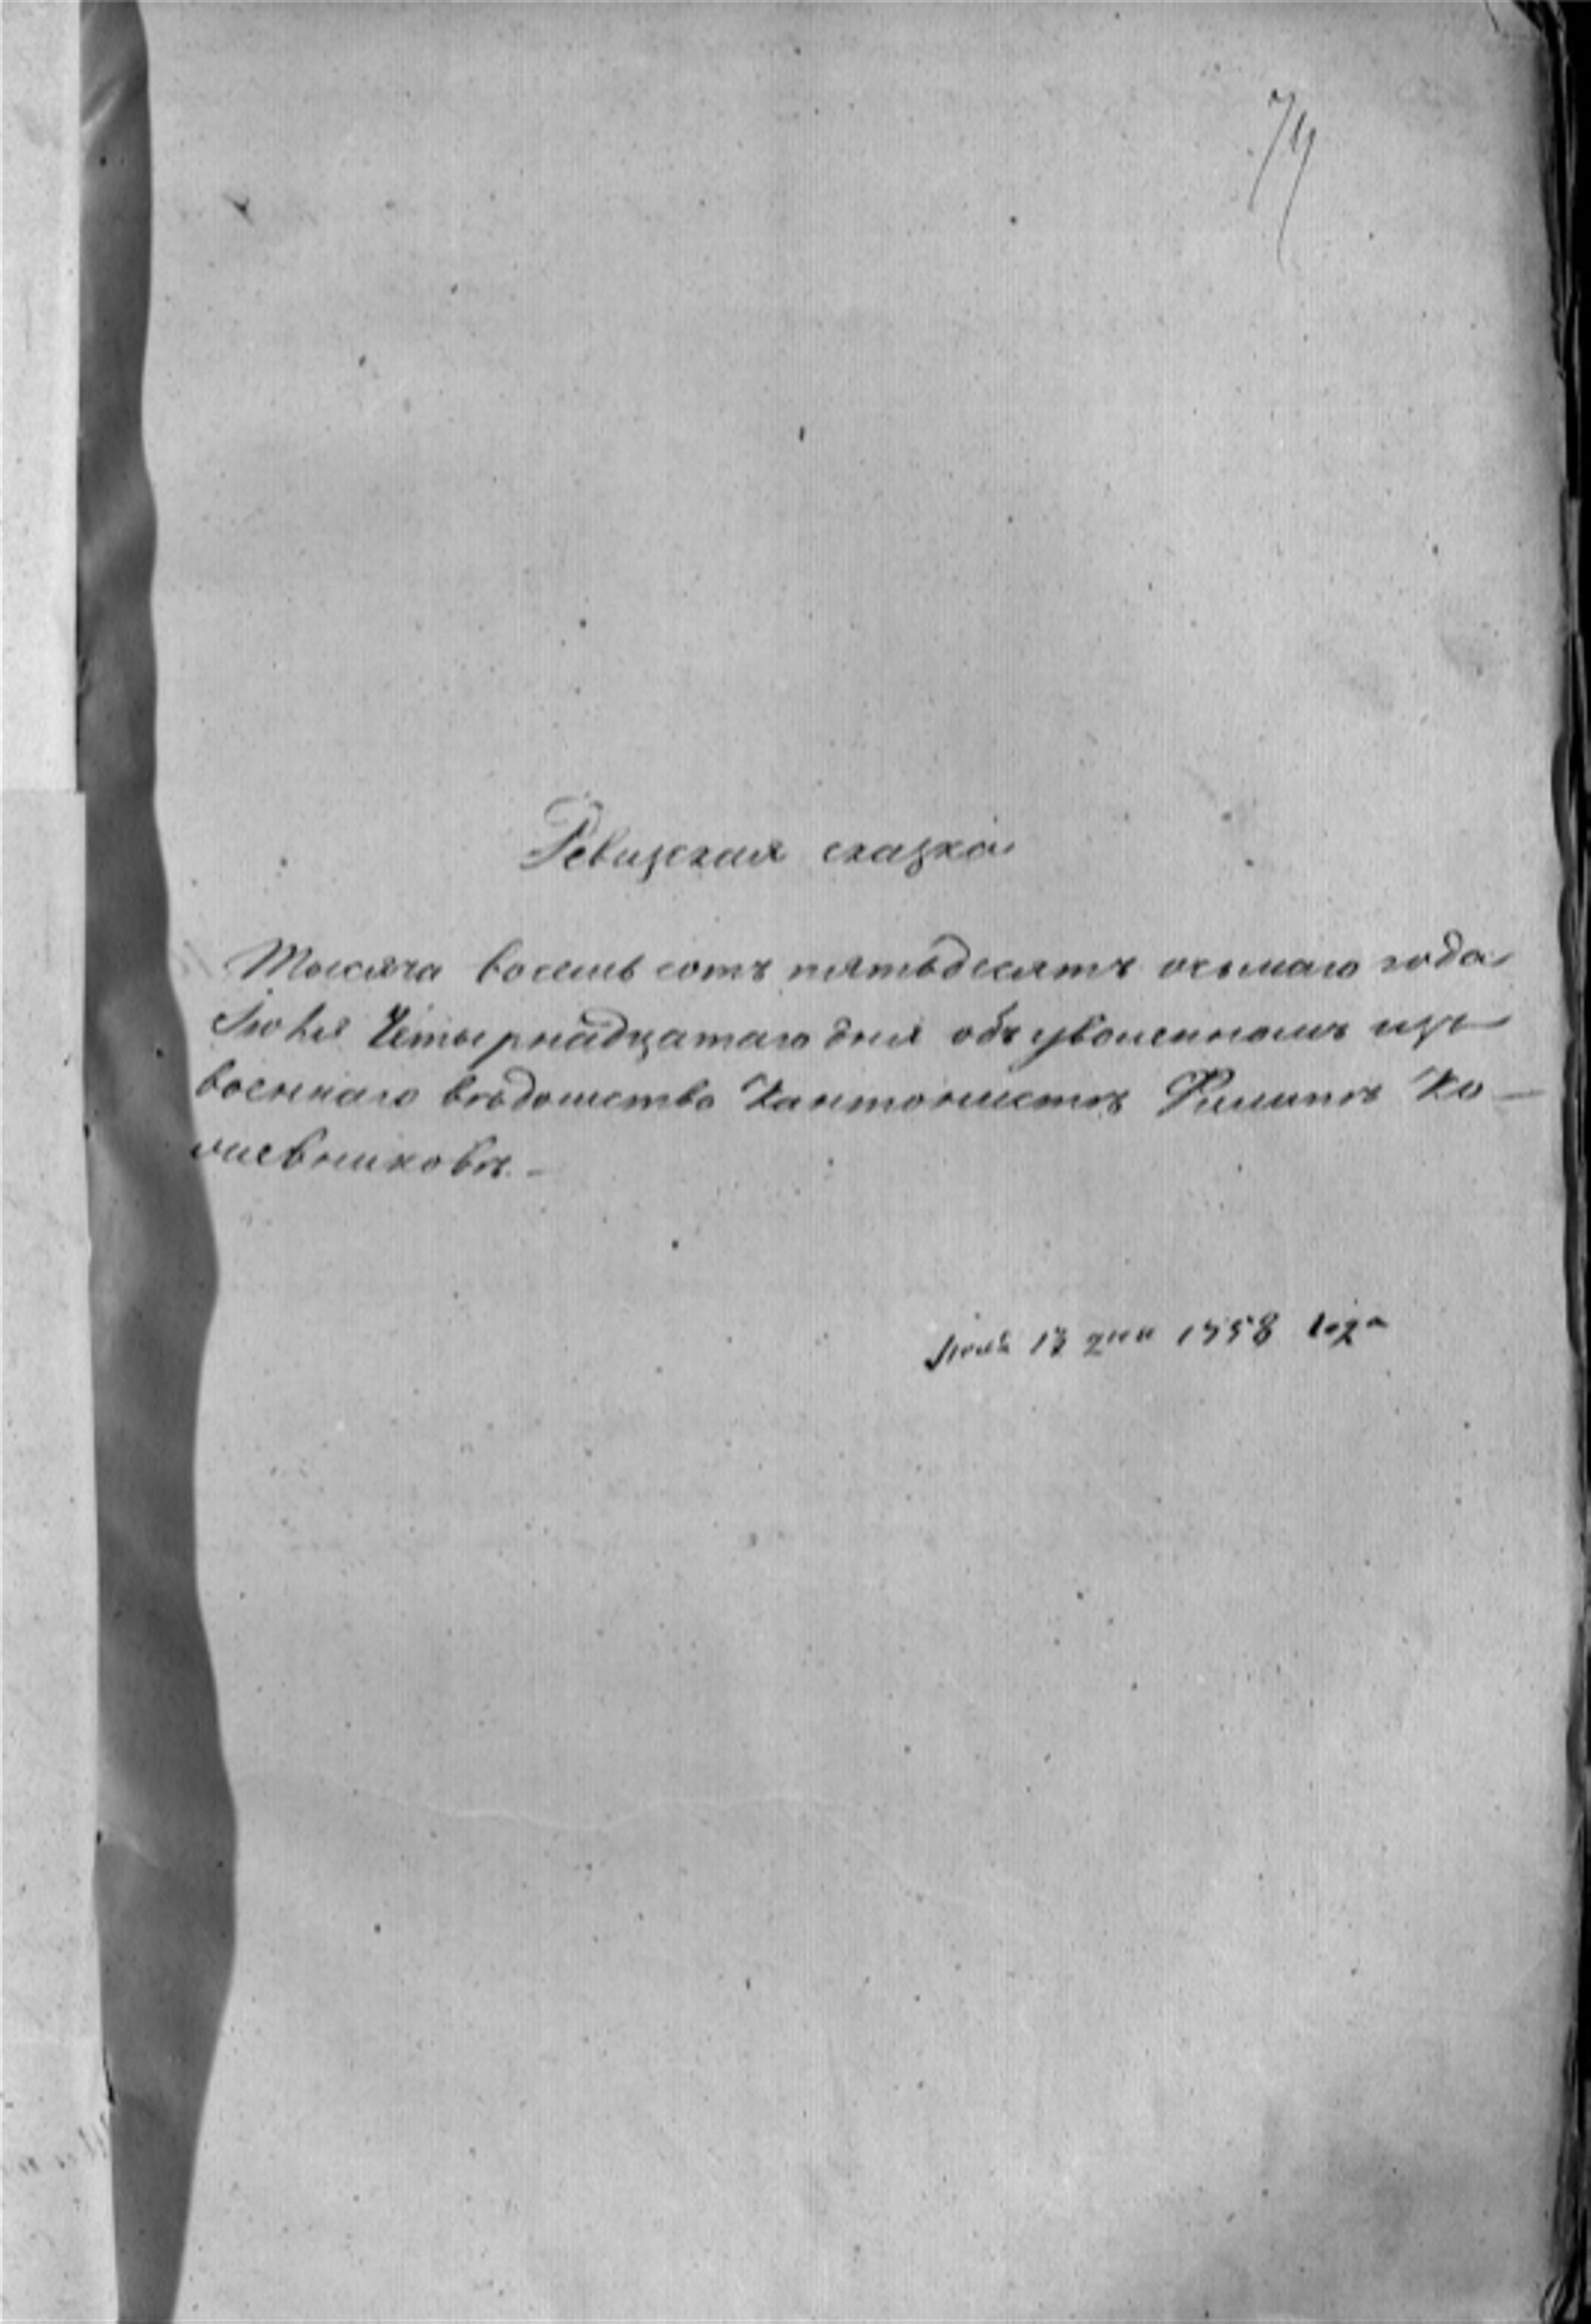 74
Ревизская сказка
Тысяча восемь сотъ пятьдесятъ осьмаго года
Іюля Четырнадцатаго дня объ уволенномъ изъ
военнаго вѣдомства Кантонистъ Филипъ Ко-
жевниковъ. -
Іюля дня 1858 года